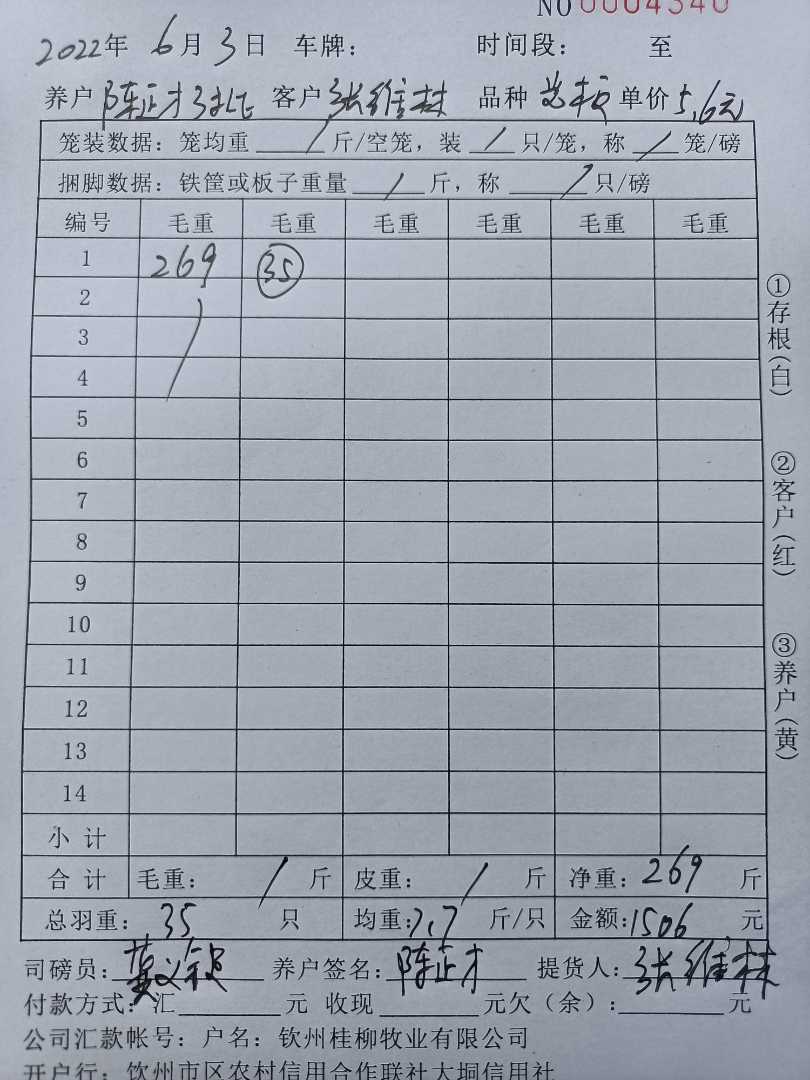 NO 0004340
2022年 6月 3日 车牌: 时间段: 至
养户 陈正才 客户 张维林 品种 单价 5.6元
笼装数据: 笼均重 / 斤/空笼, 装 / 只/笼, 称 / 笼/磅
捆脚数据: 铁筐或板子重量 / 斤, 称 / 只/磅
编号 毛重 毛重 毛重 毛重 毛重 毛重
1 269 35
2 /
3
4
5
6
7
8
9
10
11
12
13
14
小计
合计 毛重: / 斤 皮重: / 斤 净重: 269 斤
总羽重: 35 只 均重: 7.7 斤/只 金额: 1506 元
司磅员: 养户签名: 陈正才 提货人: 张维林
付款方式: 汇 元 收现 元欠(余): 元
公司汇款帐号: 户名: 钦州桂柳牧业有限公司
开户行: 钦州市区农村信用合作联社大垌信用社
①存根(白)
②客户(红)
③养户(黄)